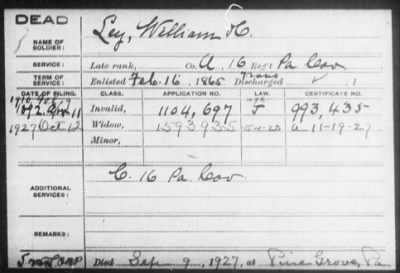 DEAD
NAME OF SOLDIER: Ley, William H.
SERVICE: Late rank, Co. A, 16 Reg't Pa Cav
TERM OF SERVICE: Enlisted Feb. 16, 1865 Discharged Trans, 1
DATE OF FILING. CLASS. APPLICATION NO. LAW. CERTIFICATE NO.
Invalid, 1104,697 J 993,435
1927 Oct 12 Widow, 1593935 5-1-20 A 11-19-27
Minor,
ADDITIONAL SERVICES: C. 16 Pa. Cav.
REMARKS:
Died Sep 9, 1927, at Pine Grove, Pa